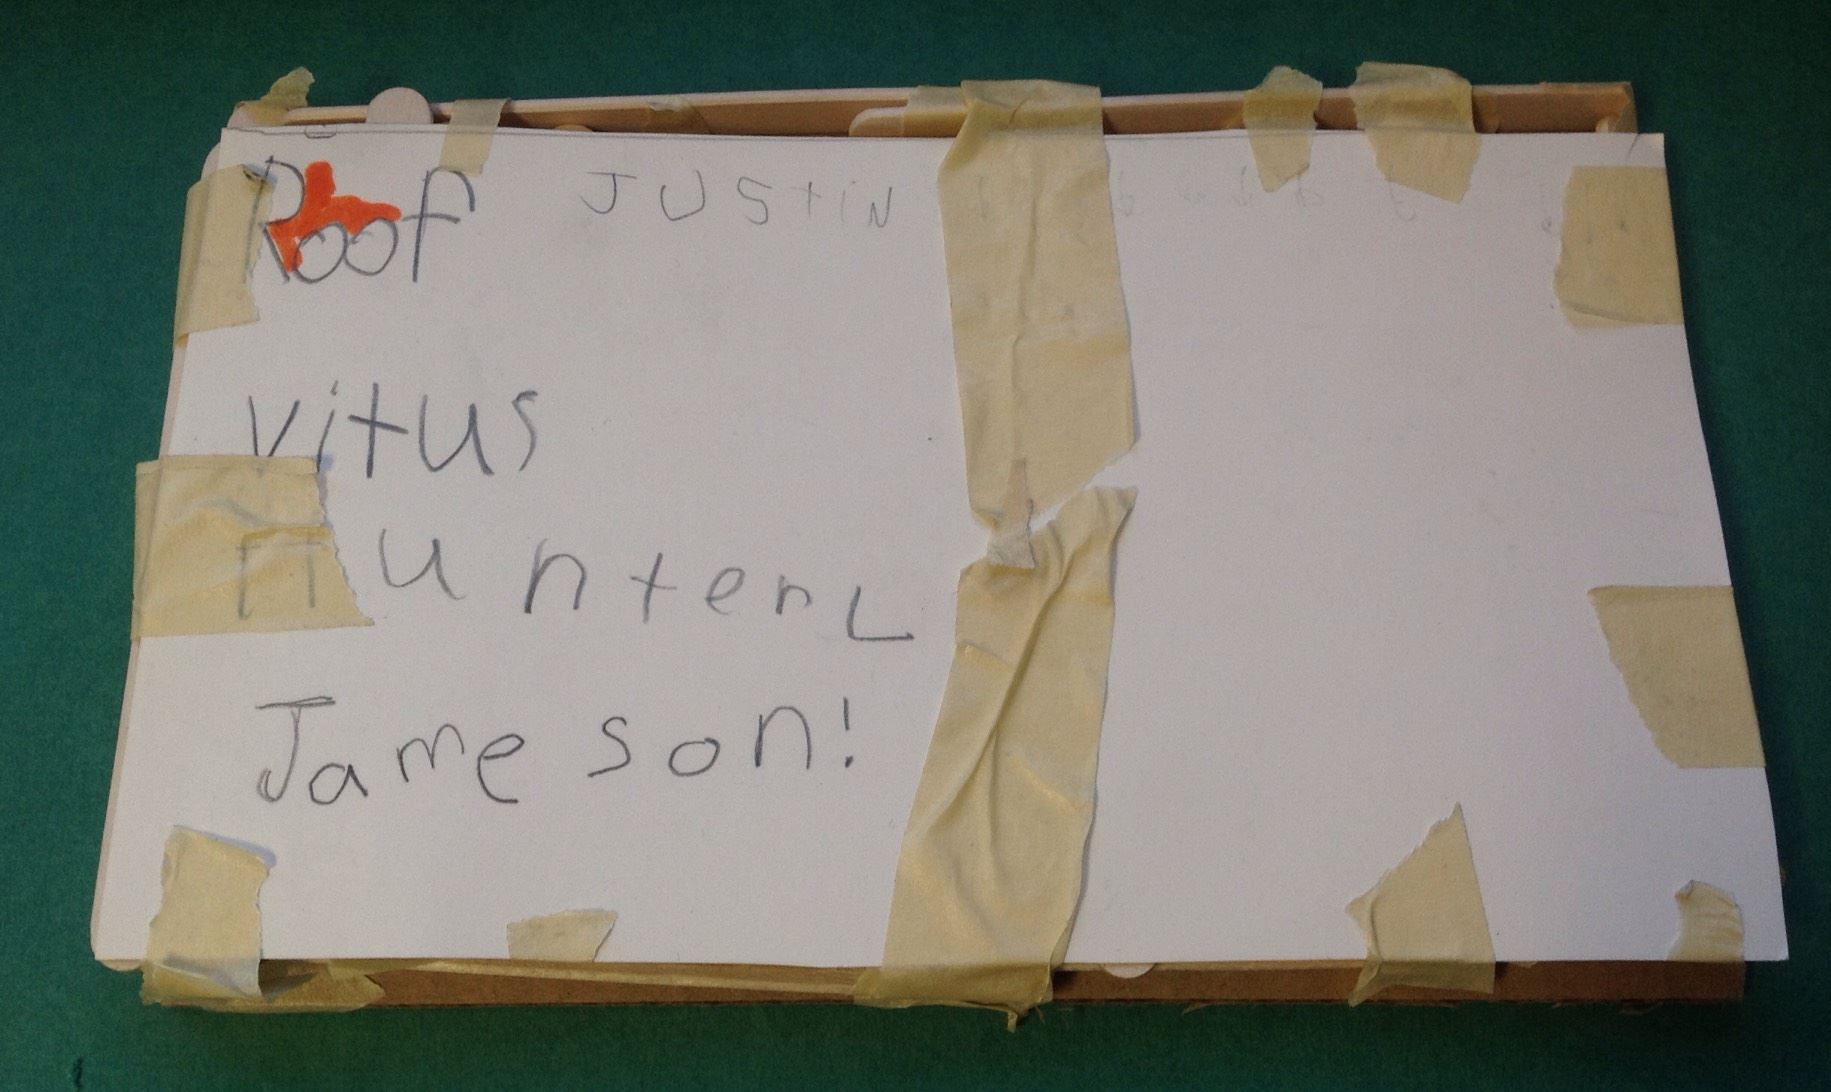 Roof JUStiN
vitus
Hunter L
Jameson!